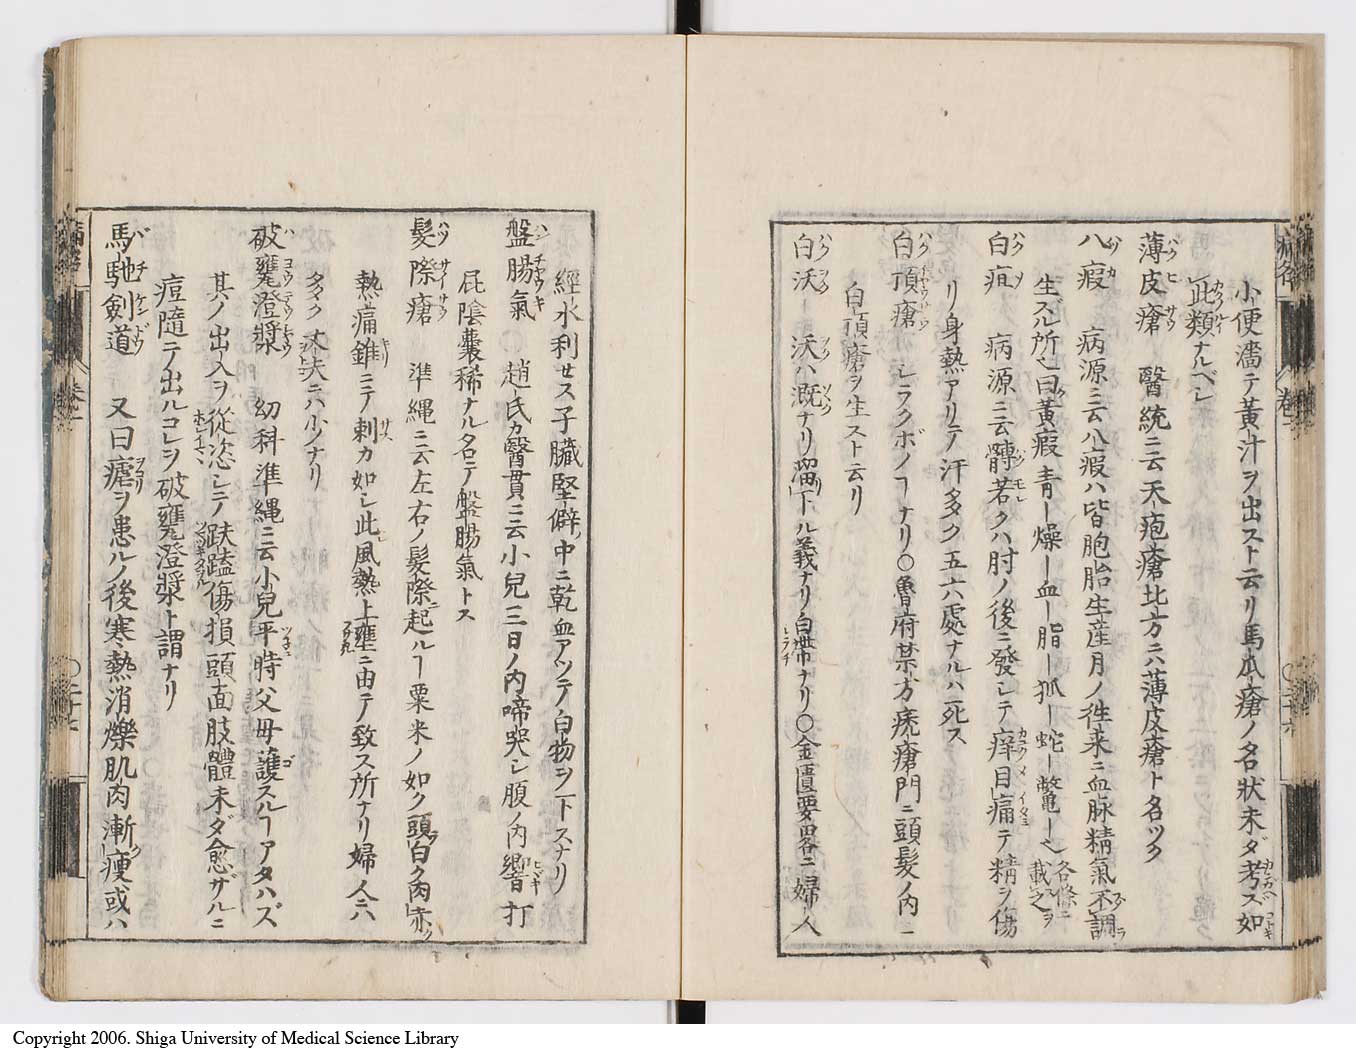 小便濇テ黃汁ヲ出スト云リ馬瓜瘡ノ名狀未ダ考ズ如
此類ナルベシ
薄皮瘡 醫統ニ云天疱瘡北方ニハ薄皮瘡ト名ツク
八瘕 病源ニ云八瘕ハ皆胞胎生産月ノ徃来ニ血脉精氣不調
生ズル所也曰黃瘕青ー燥ー血ー脂ー狐ー蛇ー鼈ー也 各條ニ載之
白疽 病源ニ云髆若クハ肘ノ後ニ發シテ痒目痛テ精ヲ傷
リ身熱アリテ汗多ク五六處ナルハ死ス
白頂瘡 シラクボノヿナリ○魯府禁方疣瘡門ニ頭髮ノ内ニ
白頂瘡ヲ生スト云リ
白沃 沃ハ漑ナリ溜下ル義ナリ白帶ナリ○金匱要畧ニ婦人
經水利セス子臟堅僻中ニ乾血アツテ白物ヲ下スナリ
盤腸氣 趙氏カ醫貫ニ云小兒三日ノ内啼哭シ腹ノ内響打
屁陰囊稀ナル名テ盤腸氣トス
髮際瘡 準縄ニ云左右ノ髮際起ルー粟米ノ如ク頭白ク肉赤ク
熱痛錐ニテ刺カ如シ此風熱上壅ニ由テ致ス所ナリ婦人ニハ
多ク丈夫ニハ少ノナリ
破甕澄漿 幼科準縄ニ云小兒平時父母護スルヿアタハズ
其ノ出入ヲ從恣シテ趺磕傷損頭面肢體未ダ愈ザルニ
痘隨テ出ルコレヲ破甕澄漿ト謂ナリ
馬馳劍道 又曰瘧ヲ患ルノ後寒熱消爍肌肉漸痩或ハ
Copyright 2006. Shiga University of Medical Science Library